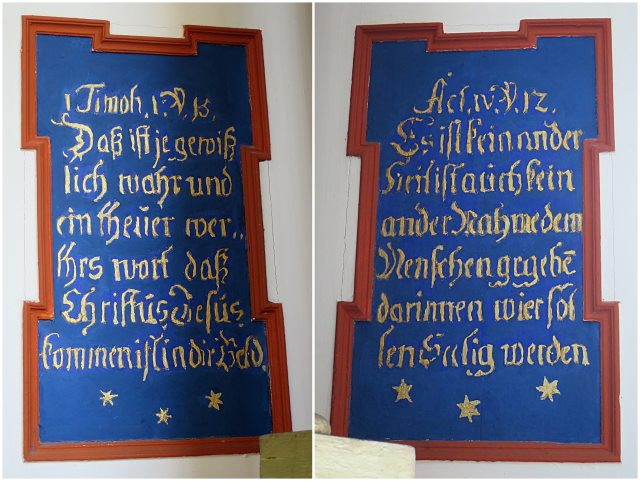 1 Timoh. 1. V. 15.
Daß ist je gewiß
lich wahr und
ein theuer wer„
thes wort daß
Christus Jesus
kommen ist in die Weld.
Act. IV. V. 12.
Es ist kein ander
Heil ist auch kein
ander Nahme dem
Menschen gegebē
darinnen wier söl
len Seelig werden